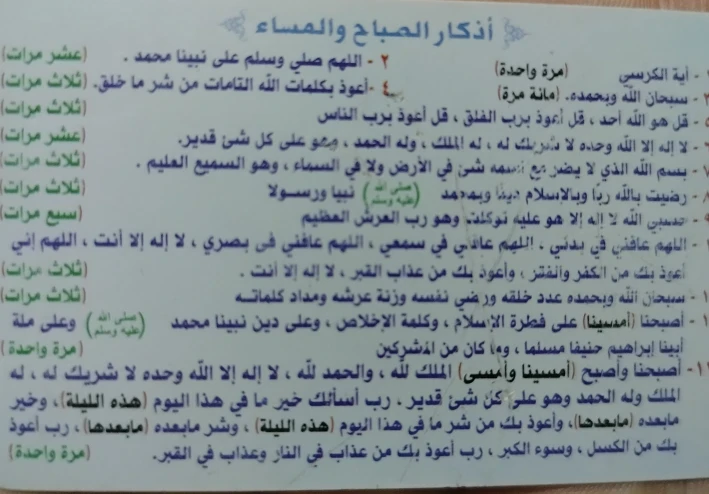 أذكار الصباح والمساء
١ - أية الكرسي (مرة واحدة) ٢ - اللهم صلي وسلم على نبينا محمد . (عشر مرات)
٣ - سبحان الله وبحمده. (مائة مرة) ٤ -أعوذ بكلمات الله التامات من شر ما خلق. (ثلاث مرات)
- قل هو الله أحد ، قل أعوذ برب الفلق ، قل أعوذ برب الناس (ثلاث مرات)
- لا إله إلا الله وحده لا شريك له ، له الملك ، وله الحمد ، وهو على كل شئ قدير. (عشر مرات)
٧ - بسم الله الذي لا يضر مع اسمه شئ في الأرض ولا في السماء ، وهو السميع العليم . (ثلاث مرات)
٨ - رضيت بالله ربا وبالإسلام دينا وبمحمد (صلى الله عليه وسلم) نبيا ورسولا (ثلاث مرات)
٩ - حسبي الله لا إله إلا هو عليه توكلت وهو رب العرش العظيم (سبع مرات)
- اللهم عافني في بدني ، اللهم عافني في سمعي ، اللهم عافني فى بصري ، لا إله إلا أنت ، اللهم إني
أعوذ بك من الكفر والفقر ، وأعوذ بك من عذاب القبر ، لا إله إلا أنت . (ثلاث مرات)
- سبحان الله وبحمده عدد خلقه ورضي نفسه وزنة عرشه ومداد كلماته (ثلاث مرات)
- أصبحنا (أمسينا) على فطرة الإسلام ، وكلمة الإخلاص ، وعلى دين نبينا محمد (صلى الله عليه وسلم) وعلى ملة
أبينا إبراهيم حنيفا مسلما ، وما كان من المشركين (مرة واحدة)
- أصبحنا وأصبح (أمسينا وأمسى) الملك لله ، والحمد لله ، لا إله إلا الله وحده لا شريك له ، له
الملك وله الحمد وهو على كل شئ قدير ، رب أسألك خير ما في هذا اليوم (هذه الليلة)، وخير
مابعده (مابعدها)، وأعوذ بك من شر ما في هذا اليوم (هذه الليلة) ، وشر مابعده (مابعدها)، رب أعوذ
بك من الكسل ، وسوء الكبر ، رب أعوذ بك من عذاب في النار وعذاب في القبر. (مرة واحدة)